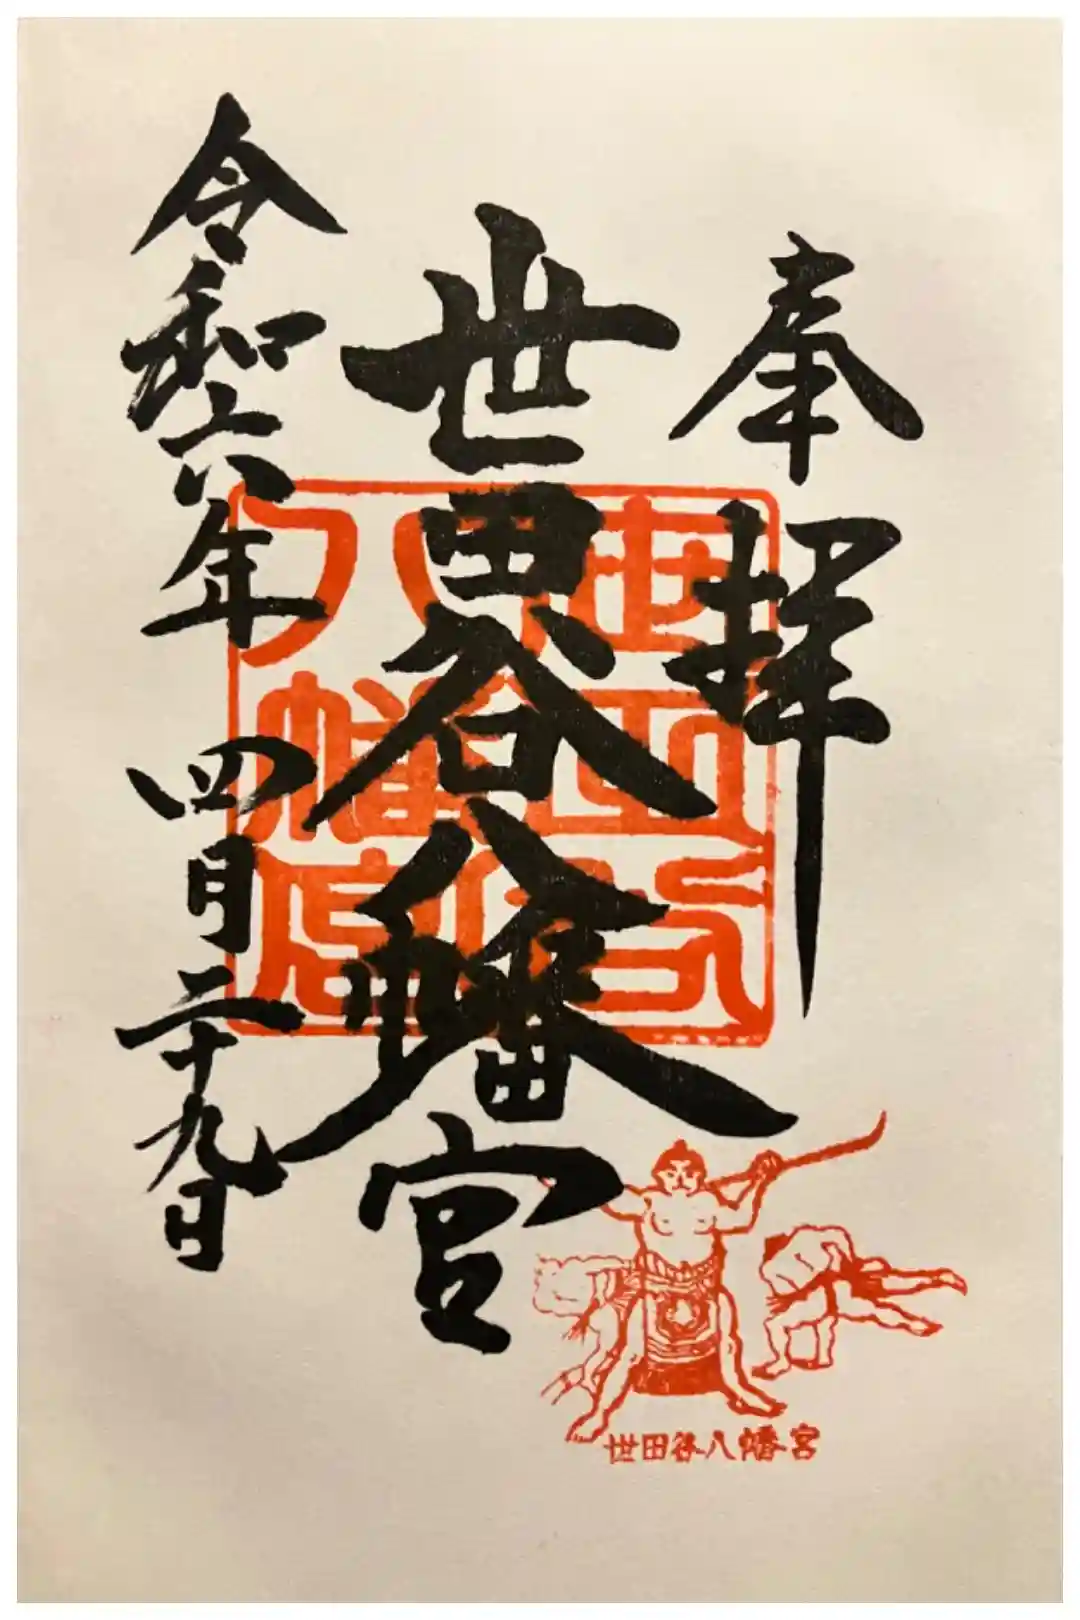 奉拝
世田谷八幡宮
令和六年四月二十九日
世田谷
八幡宮
世田谷八幡宮